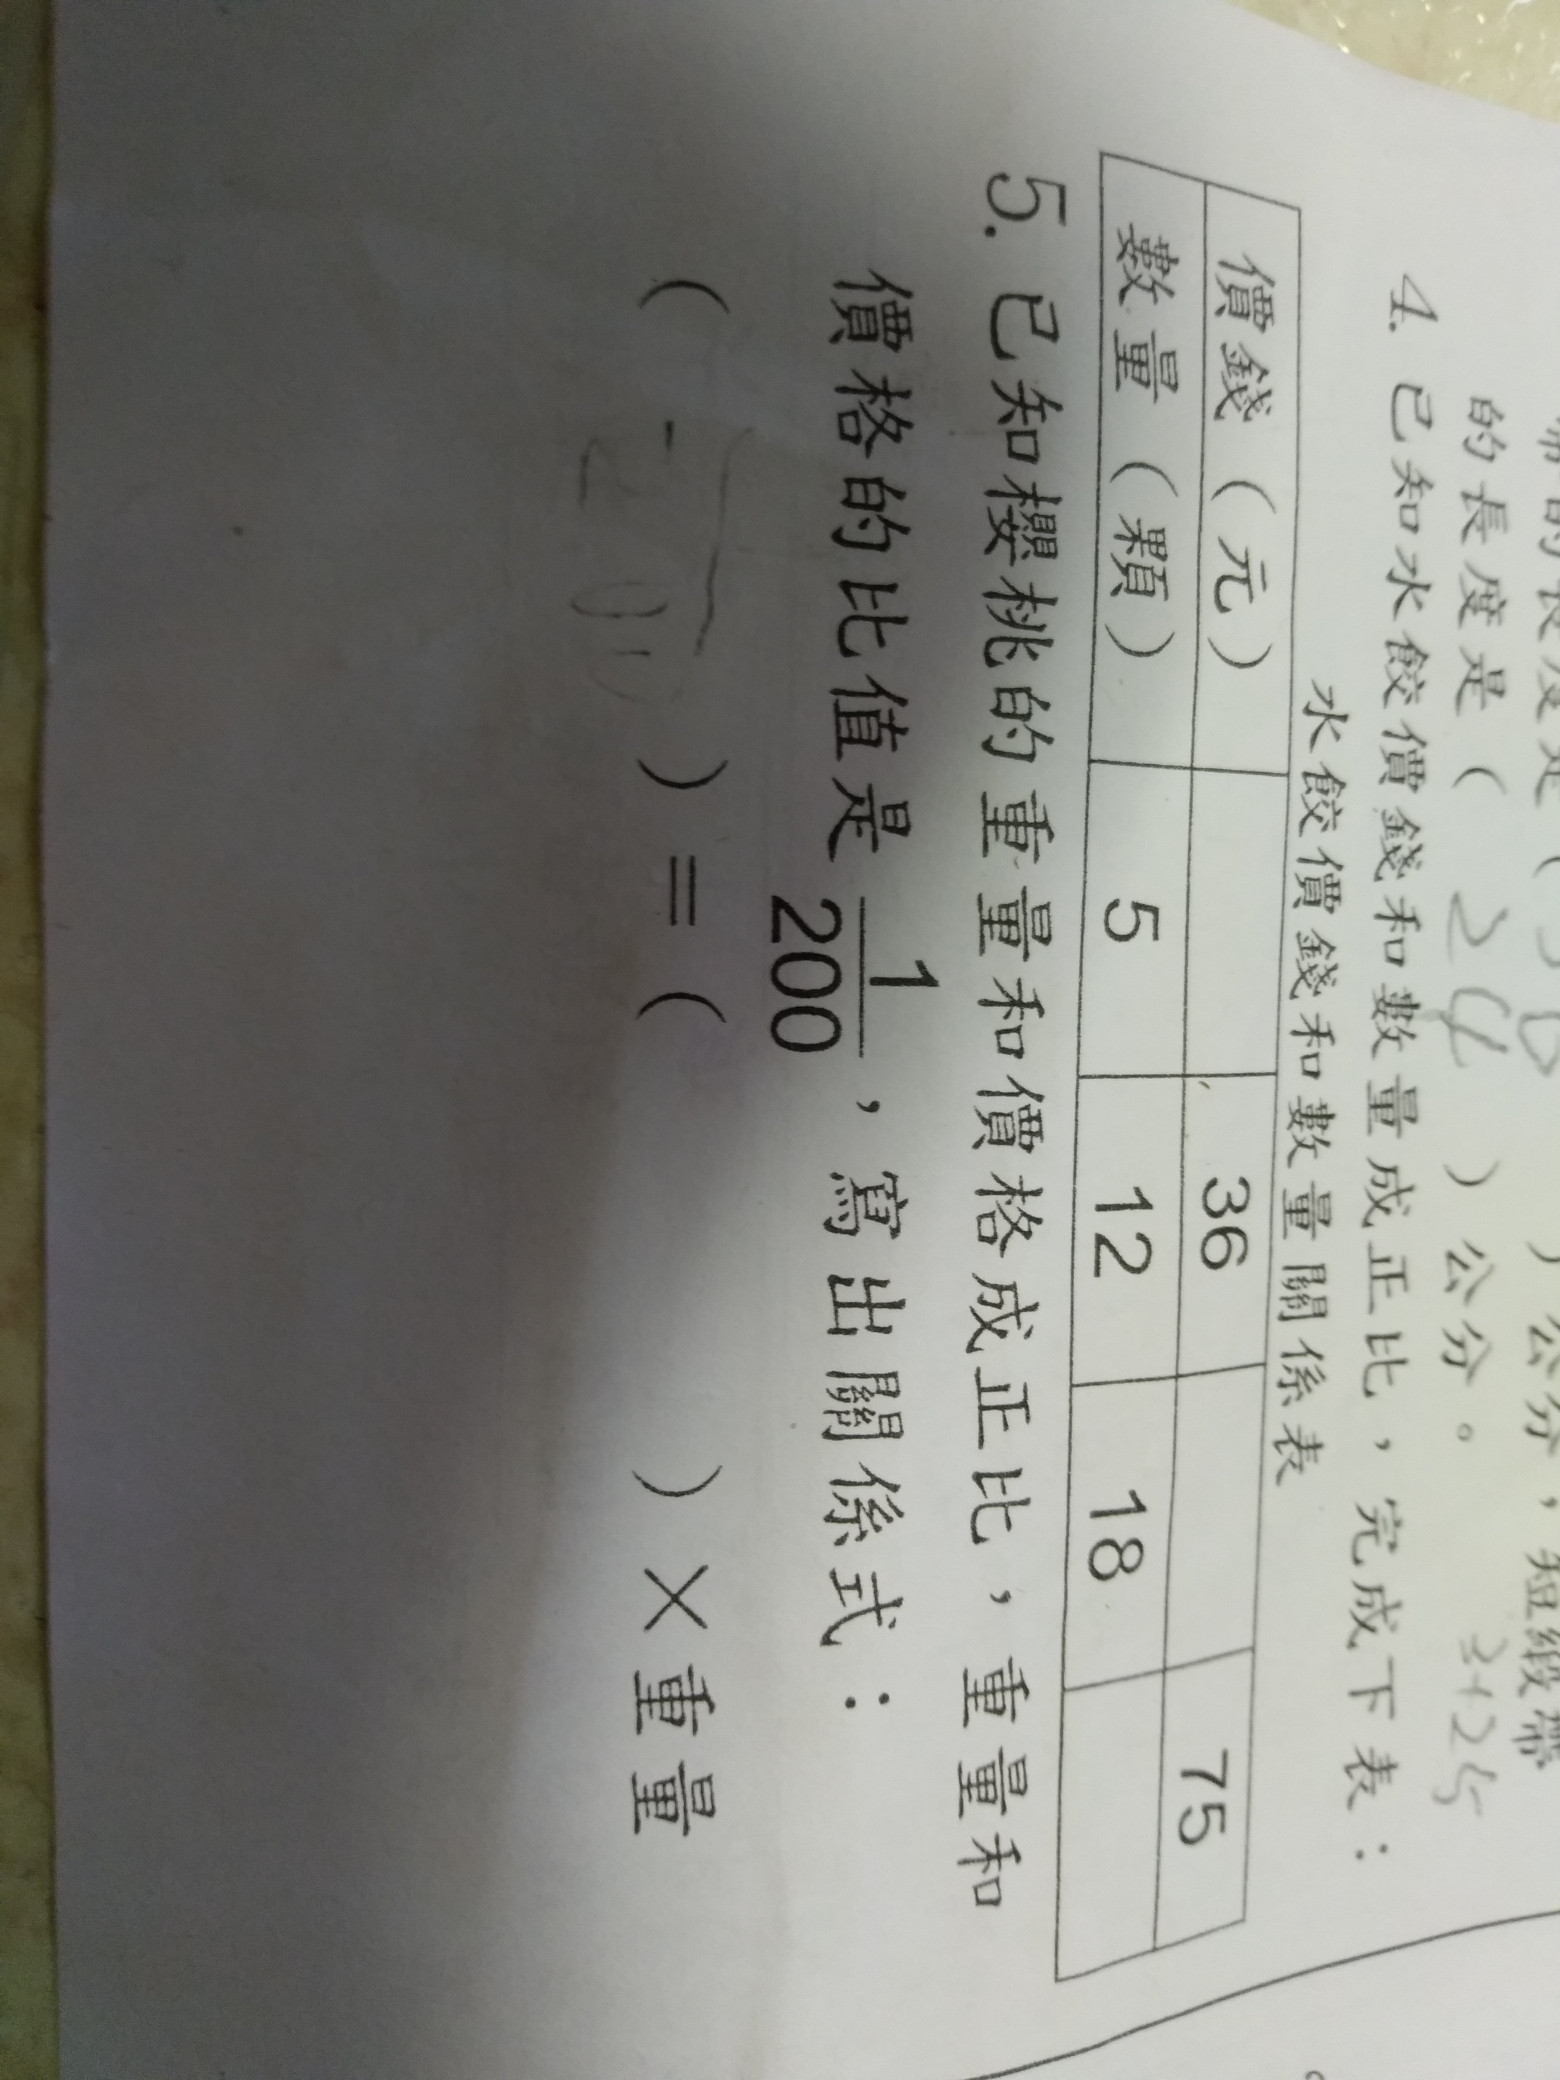 的長度是（ 24 ）公分。
4. 已知水餃價錢和數量成正比，完成下表：
水餃價錢和數量關係表
價錢（元） 36 75
數量（顆） 5 12 18
5. 已知櫻桃的重量和價格成正比，重量和
價格的比值是 1/200 ，寫出關係式：
（ ）＝（ ）×重量